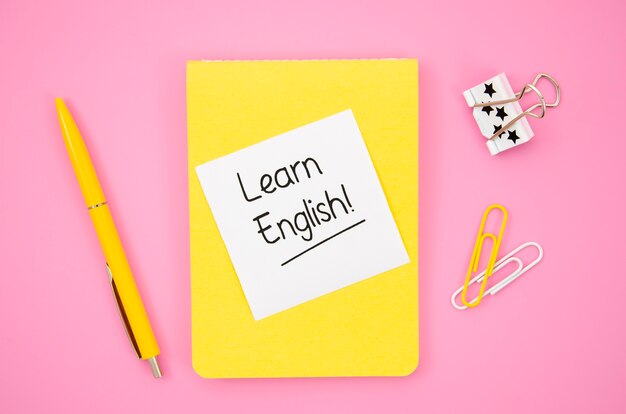 Learn
English!